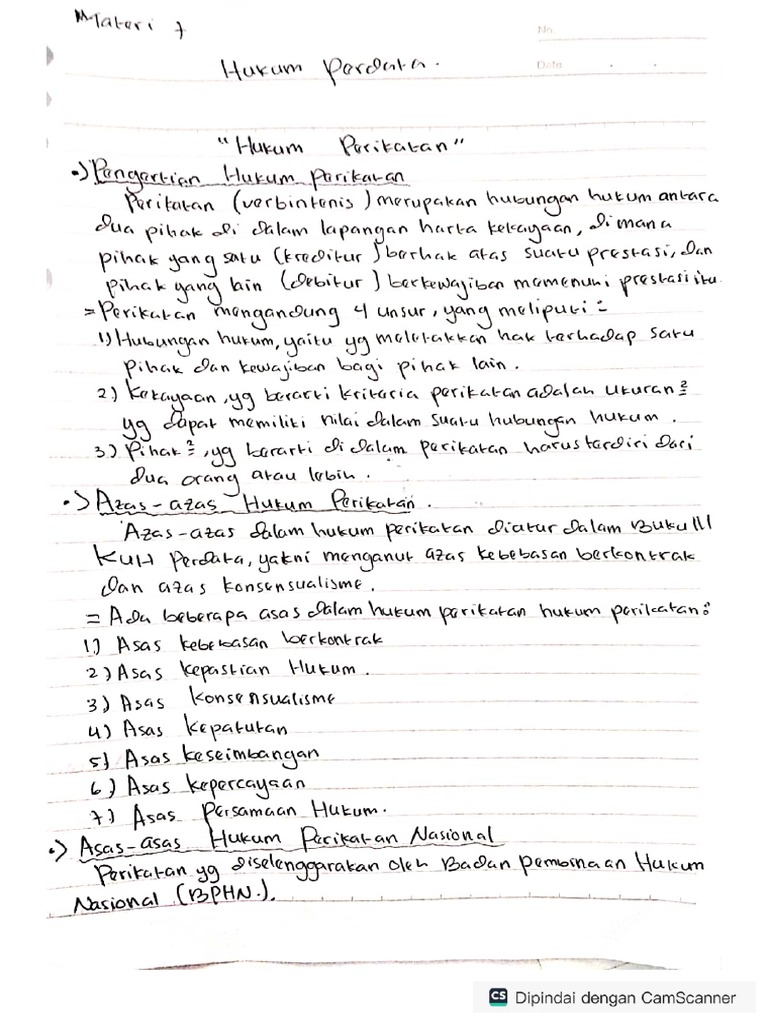 Materi 7
No.
Hukum Perdata.
Date
"Hukum Perikatan"
•) Pengertian Hukum Perikatan
Perikatan (verbintenis) merupakan hubungan hukum antara
dua pihak di dalam lapangan harta kekayaan, dimana
pihak yang satu (kreditur) berhak atas suatu prestasi, dan
pihak yang lain (debitur) berkewajiban memenuhi prestasi itu.
= Perikatan mengandung 4 unsur, yang meliputi =
1) Hubungan hukum, yaitu yg meletakkan hak terhadap satu
pihak dan kewajiban bagi pihak lain.
2) Kekayaan, yg berarti kriteria perikatan adalah ukuran²
yg dapat memiliki nilai dalam suatu hubungan hukum.
3) Pihak², yg berarti di dalam perikatan harus terdiri dari
dua orang atau lebih.
•) Azas-azas Hukum Perikatan.
Azas-azas dalam hukum perikatan diatur dalam Buku III
KUH Perdata, yakni menganut azas kebebasan berkontrak
dan azas konsensualisme.
= Ada beberapa asas dalam hukum perikatan hukum perikatan :
1.) Asas kebebasan berkontrak
2) Asas kepastian Hukum.
3) Asas konsensualisme
4) Asas kepatutan
5) Asas keseimbangan
6) Asas kepercayaan
7) Asas Persamaan Hukum.
•) Asas-asas Hukum Perikatan Nasional
Perikatan yg diselenggarakan oleh Badan pembinaan Hukum
Nasional (BPHN.).
CS Dipindai dengan CamScanner